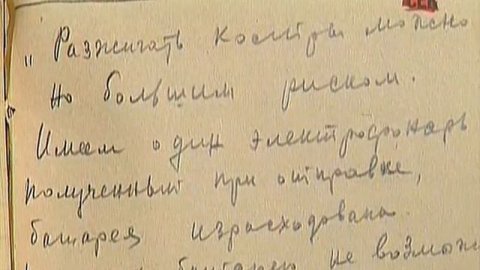 „Разжигать костры можно
но большим риском.
Имеем один электрофонарь
полученный при отправке,
батарея израсходована.
не возмож